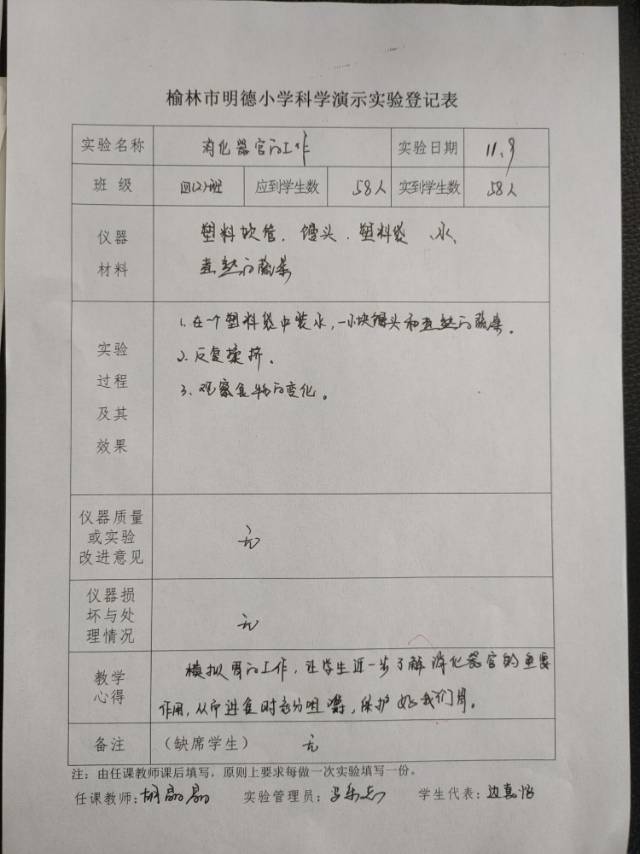 榆林市明德小学科学演示实验登记表
实验名称 消化器官的工作 实验日期 11.9
班 级 四(2)班 应到学生数 58人 实到学生数 58人
仪器材料 塑料软管. 馒头. 塑料袋 水
煮熟的蔬菜
实验过程及其效果
1. 在一个塑料袋中装水,一小块馒头和煮熟的蔬菜。
2. 反复揉挤.
3. 观察食物的变化。
仪器质量
或实验
改进意见
无
仪器损
坏与处
理情况
无
教学
心得
模拟胃的工作,让学生近一步了解消化器官的重要
作用,从而进食时充分咀嚼,保护好我们胃。
备注 (缺席学生) 无
注:由任课教师课后填写,原则上要求每做一次实验填写一份。
任课教师: 实验管理员: 学生代表: